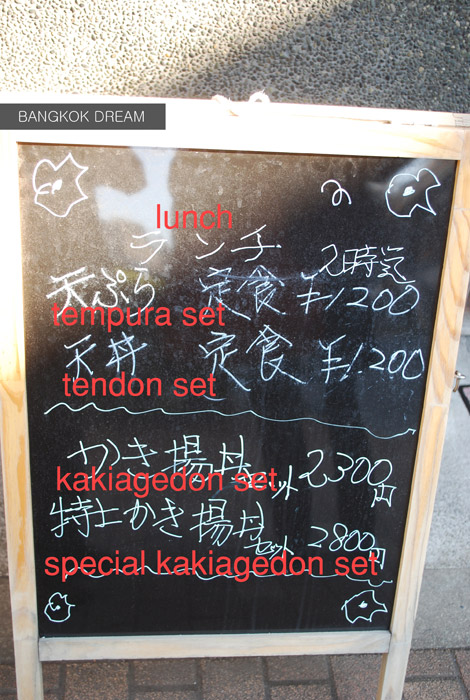 BANGKOK DREAM
lunch
ランチ 2時迄
天ぷら 定食 ¥1200
tempura set
天丼 定食 ¥1,200
tendon set
かき揚丼セット 2,300円
kakiagedon set
特上かき揚丼セット 2800円
special kakiagedon set